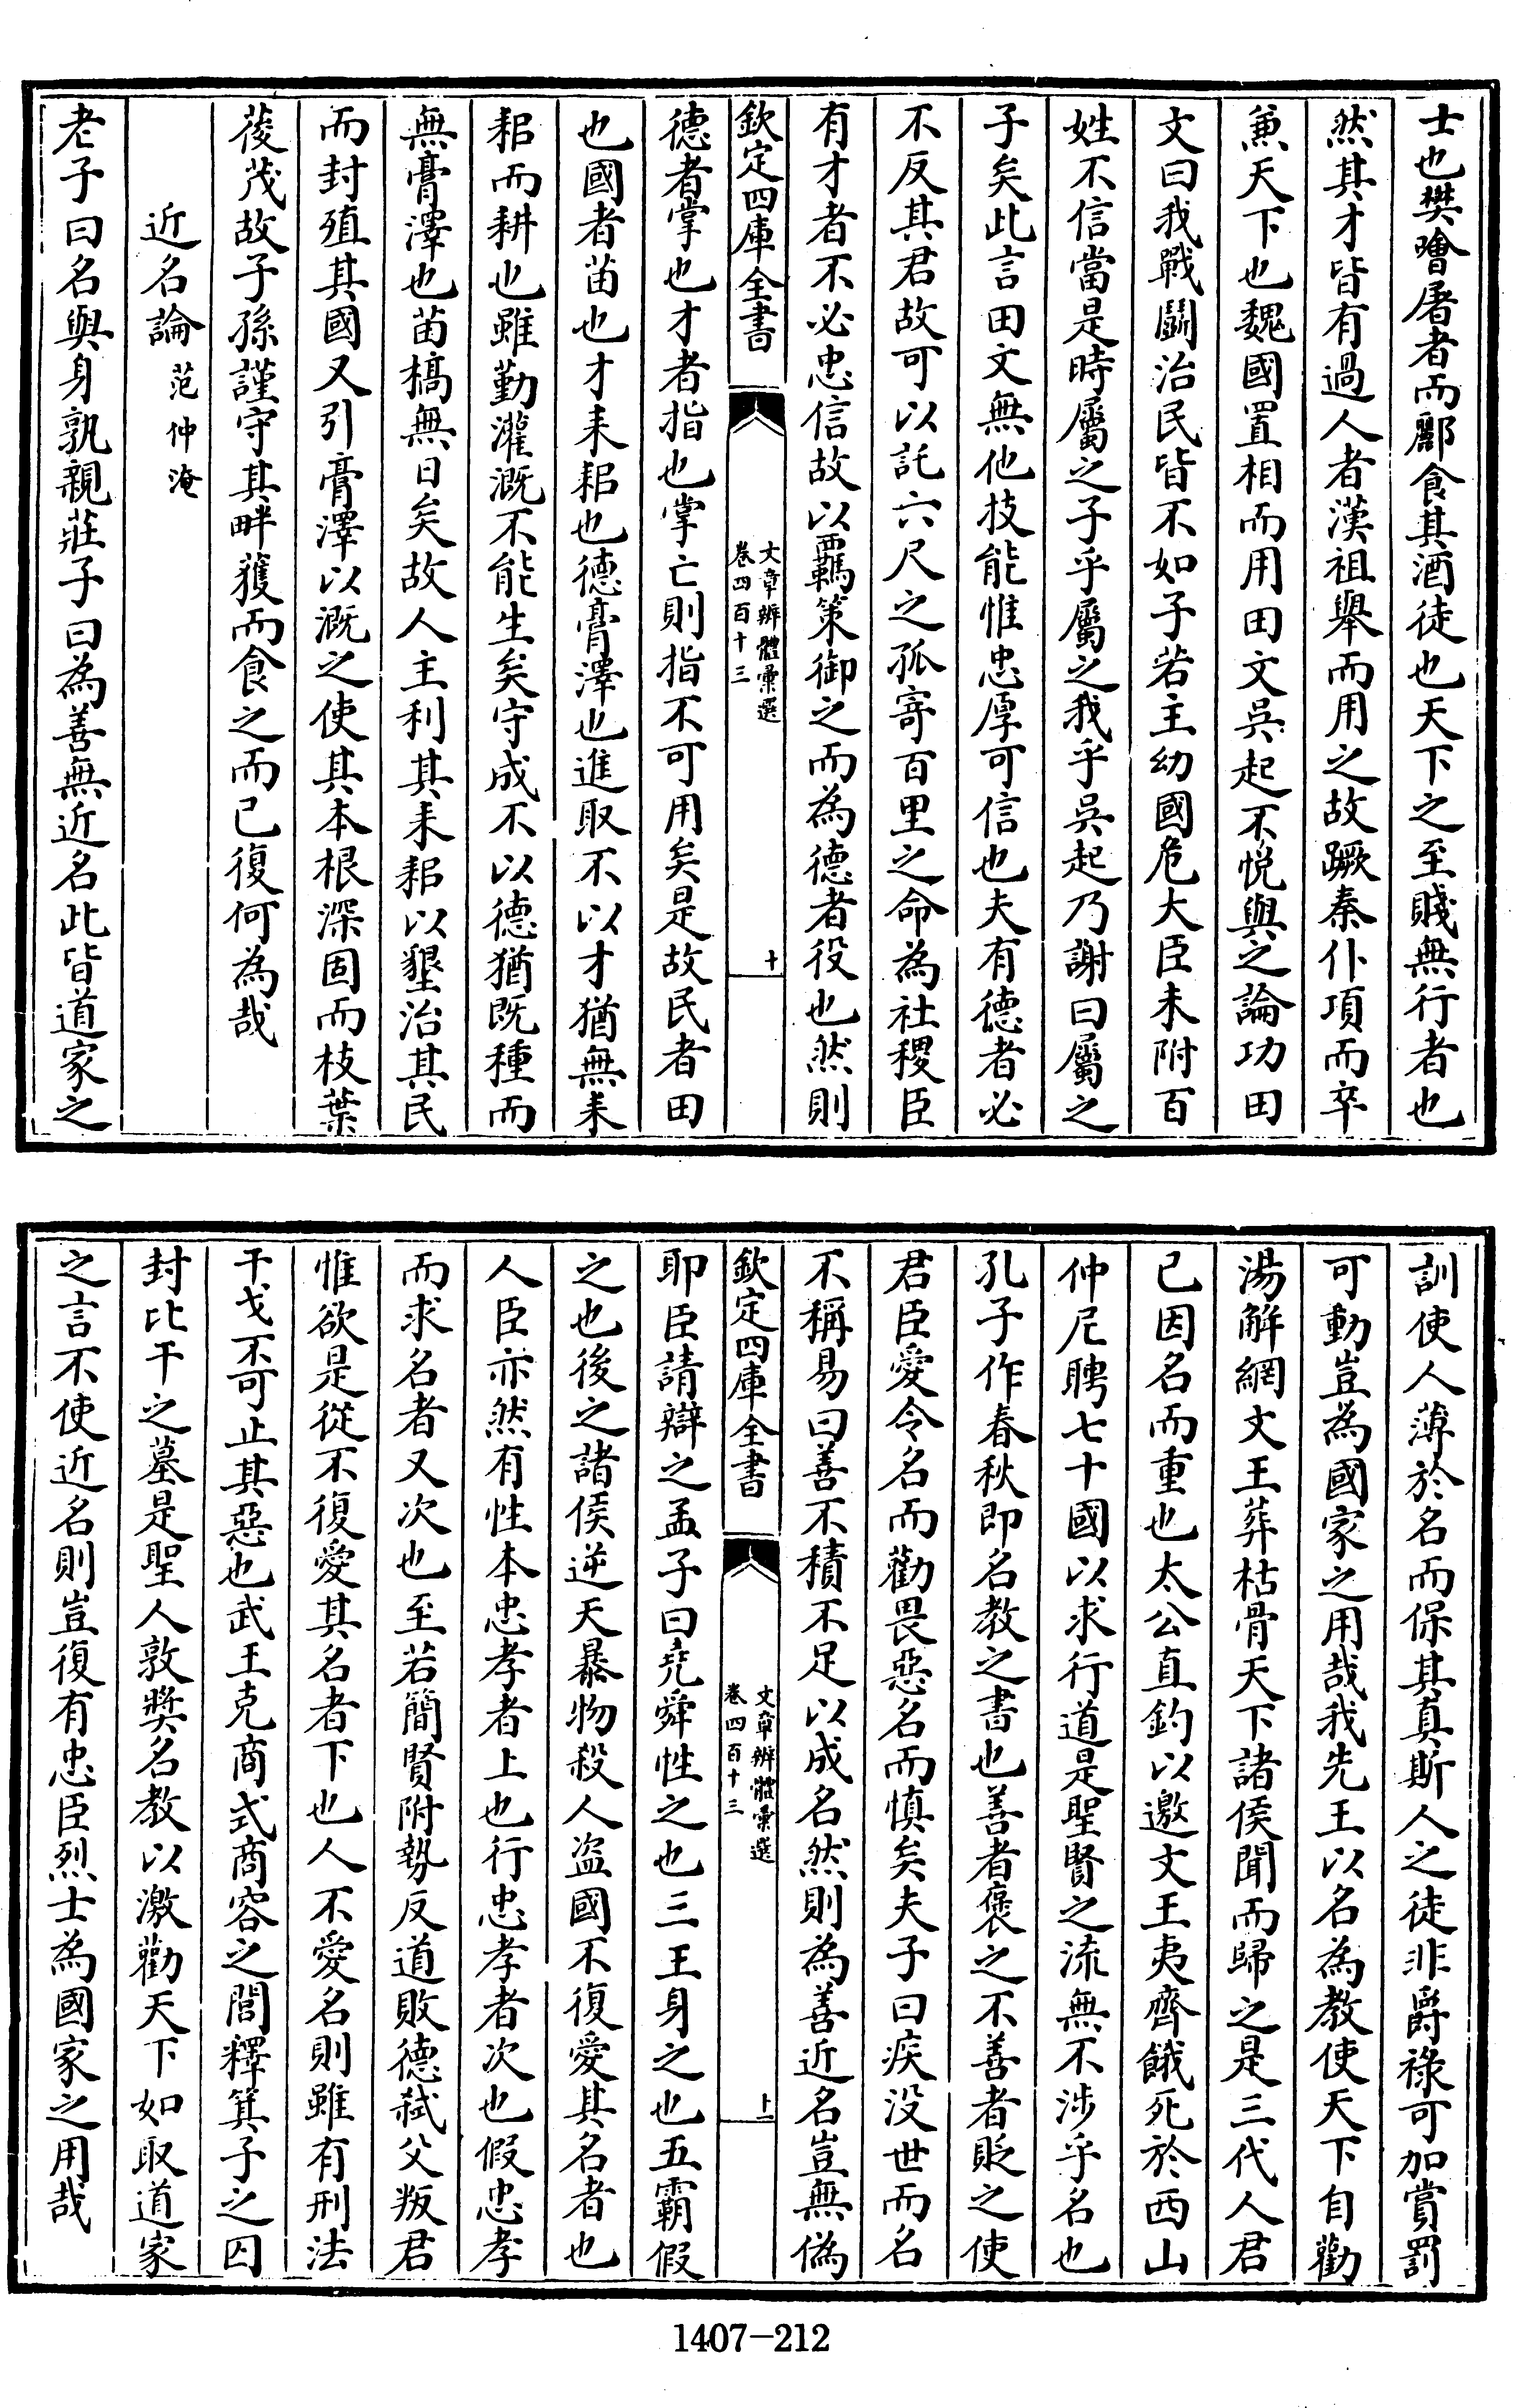 士也樊噲屠者而酈食其酒徒也天下之至賤無行者也
然其才皆有過人者漢祖舉而用之故蹶秦仆項而卒
兼天下也魏國置相而用田文吳起不悅與之論功田
文曰我戰鬭治民皆不如子若主幼國危大臣未附百
姓不信當是時屬之子乎屬之我乎吳起乃謝曰屬之
子矣此言田文無他技能惟忠厚可信也夫有德者必
不反其君故可以託六尺之孤寄百里之命為社稷臣
有才者不必忠信故以羈策御之而為德者役也然則
欽定四庫全書
文章辨體彙選
卷四百十三
十
德者掌也才者指也掌亡則指不可用矣是故民者田
也國者苗也才耒耜也德膏澤也進取不以才猶無耒
耜而耕也雖勤灌溉不能生矣守成不以德猶既種而
無膏澤也苗槁無日矣故人主利其耒耜以墾治其民
而封殖其國又引膏澤以溉之使其本根深固而枝葉
葰茂故子孫謹守其畔蒦而食之而已復何為哉
近名論 范仲淹
老子曰名與身孰親莊子曰為善無近名此皆道家之
訓使人薄於名而保其真斯人之徒非爵祿可加賞罰
可動豈為國家之用哉我先王以名為教使天下自勸
湯解網文王葬枯骨天下諸侯聞而歸之是三代人君
已因名而重也太公直釣以邀文王夷齊餓死於西山
仲尼聘七十國以求行道是聖賢之流無不涉乎名也
孔子作春秋即名教之書也善者褒之不善者貶之使
君臣愛令名而勸畏惡名而慎矣夫子曰疾没世而名
不稱易曰善不積不足以成名然則為善近名豈無偽
欽定四庫全書
文章辨體彙選
卷四百十三
十一
耶臣請辯之孟子曰堯舜性之也三王身之也五霸假
之也後之諸侯逆天暴物殺人盜國不復愛其名者也
人臣亦然有性本忠孝者上也行忠孝者次也假忠孝
而求名者又次也至若簡賢附勢反道敗德弒父叛君
惟欲是從不復愛其名者下也人不愛名則雖有刑法
干戈不可止其惡也武王克商式商容之閭釋箕子之囚
封比干之墓是聖人敦獎名教以激勸天下如取道家
之言不使近名則豈復有忠臣烈士為國家之用哉
1407-212